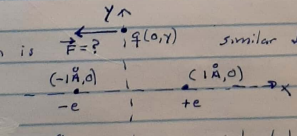 Y
is F⃗=? q(0,Y) similar
(-1Å,0) (1Å,0)
X
-e +e